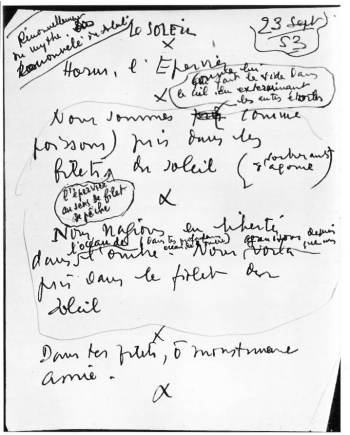 Renouvellement
du mythe.
Renouvelé du soleil
LE SOLEIL
23 Sept
53
X
Horus, l'Epervier
X
fait le vide dans
le ciel en exterminant
les autres étoiles
Nous sommes comme
poissons pris dans les
filets du soleil
s'agonie
l'épervier
au sens de filet
de pêche
X
Nous nagions en liberté
dans l'ombre Nous voilà
pris dans le filet du
soleil
X
Dans tes filets, ô monstrueuse
amie.
X